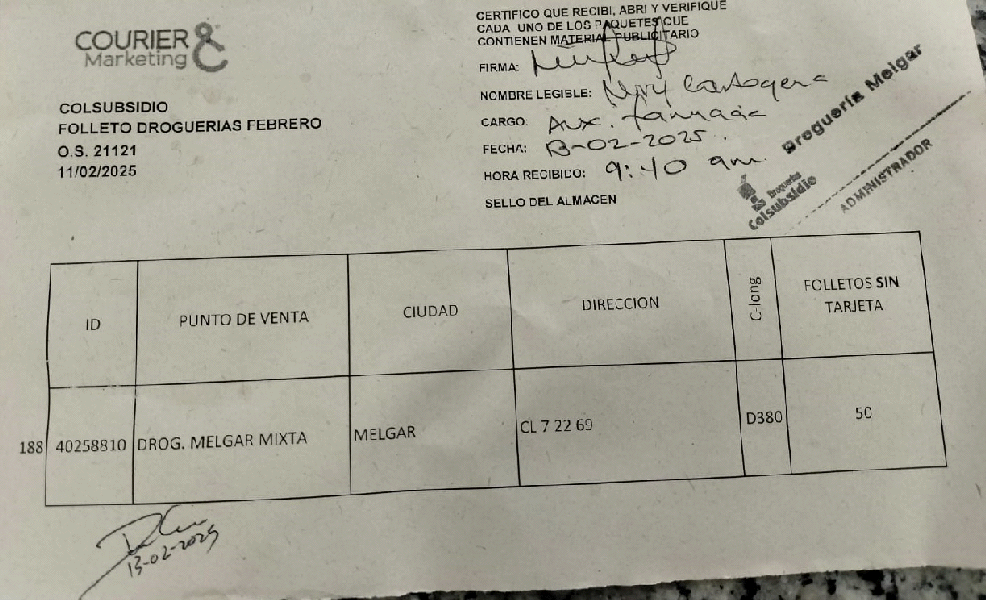 COURIER &
Marketing
COLSUBSIDIO
FOLLETO DROGUERIAS FEBRERO
O.S. 21121
11/02/2025
CERTIFICO QUE RECIBI, ABRI Y VERIFIQUE
CADA UNO DE LOS PAQUETES QUE
CONTIENEN MATERIAL PUBLICITARIO
FIRMA:
NOMBRE LEGIBLE: Cartagena
CARGO: Aux. farmacia
FECHA: 13-02-2025.
HORA RECIBIDO: 9:40 am.
SELLO DEL ALMACEN
Droguería Melgar
Droguería
Colsubsidio
ADMINISTRADOR
ID PUNTO DE VENTA CIUDAD DIRECCION C-long FOLLETOS SIN TARJETA
188 40258810 DROG. MELGAR MIXTA MELGAR CL 7 22 69 D380 50
13-02-2025